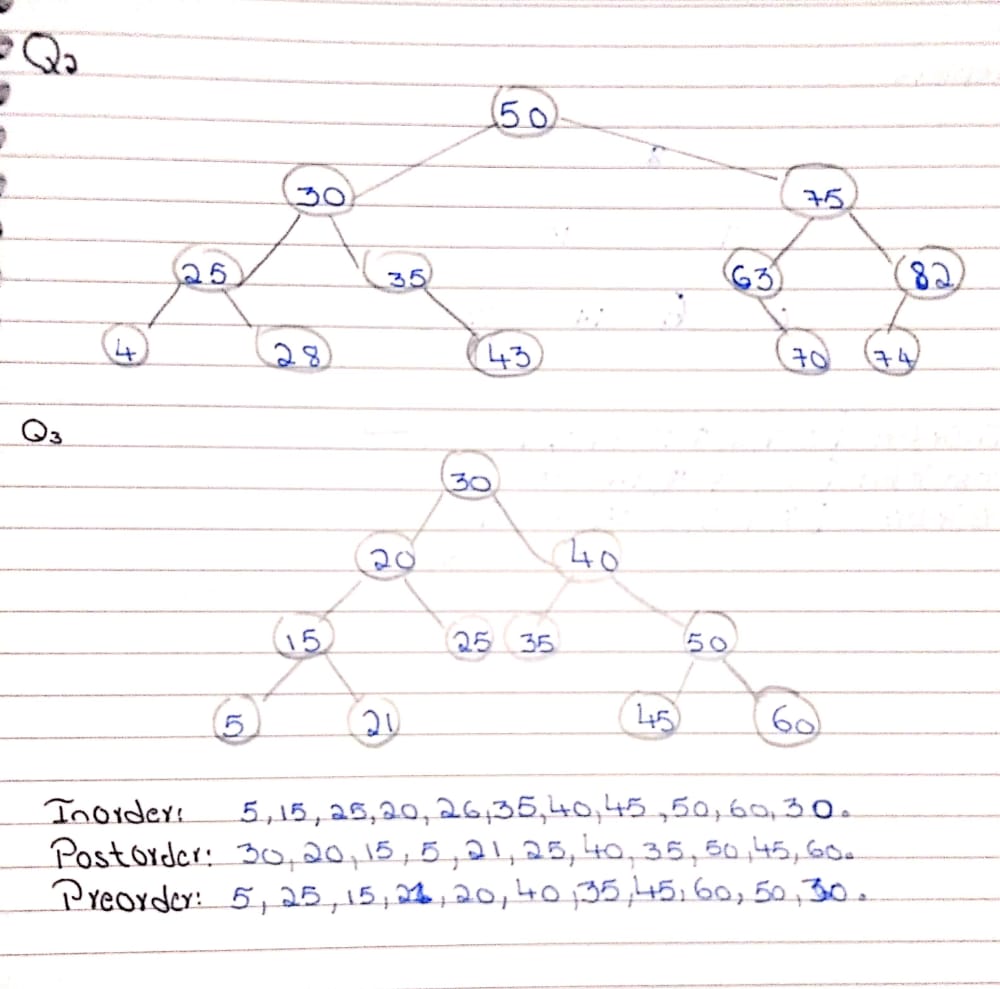 Q2
50
30 75
25 35 63 82
4 28 43 70 74
Q3
30
20 40
15 25 35 50
5 21 45 60
Inorder: 5,15,25,20,26,35,40,45,50,60,30.
Postorder: 30,20,15,5,21,25,40,35,50,45,60.
Preorder: 5,25,15,21,20,40,35,45,60,50,30.